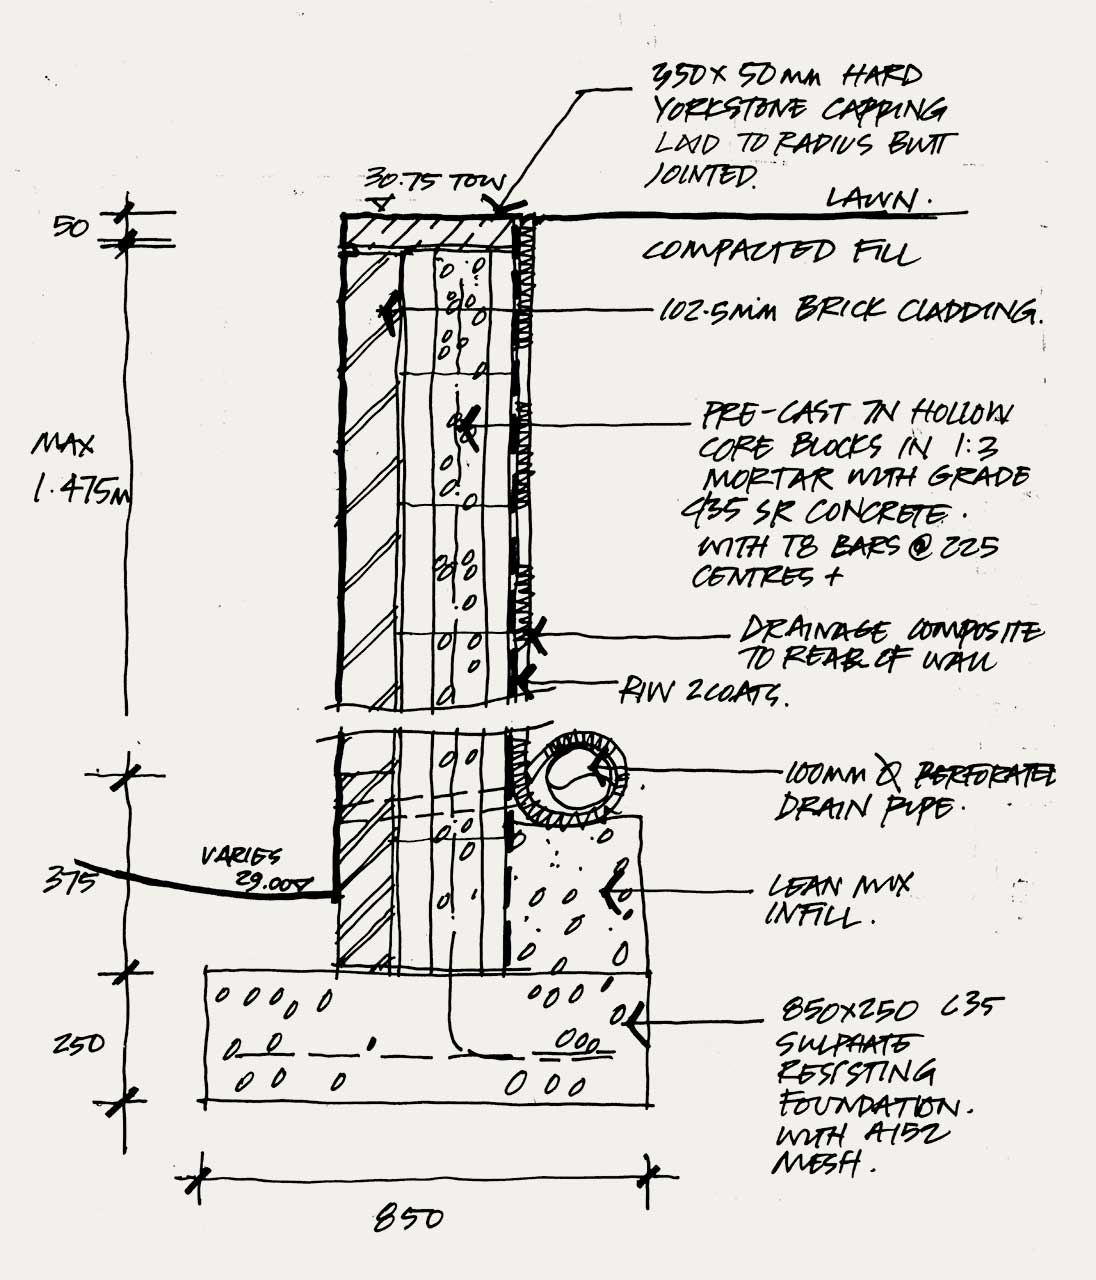 350 x 50mm HARD
YORKSTONE CAPPING
LAID TO RADIUS BUTT
JOINTED.
30.75 TOW
LAWN.
50
COMPACTED FILL
102.5mm BRICK CLADDING.
MAX
1.475m
PRE-CAST IN HOLLOW
CORE BLOCKS IN 1:3
MORTAR WITH GRADE
C35 SR CONCRETE.
WITH T8 BARS @ 225
CENTRES +
DRAINAGE COMPOSITE
TO REAR OF WALL
RIW 2 COATS.
100mm Ø PERFORATED
DRAIN PIPE.
VARIES
29.00
375
LEAN MIX
INFILL.
850x250 C35
SULPHATE
RESISTING
FOUNDATION.
WITH A152
MESH.
250
850